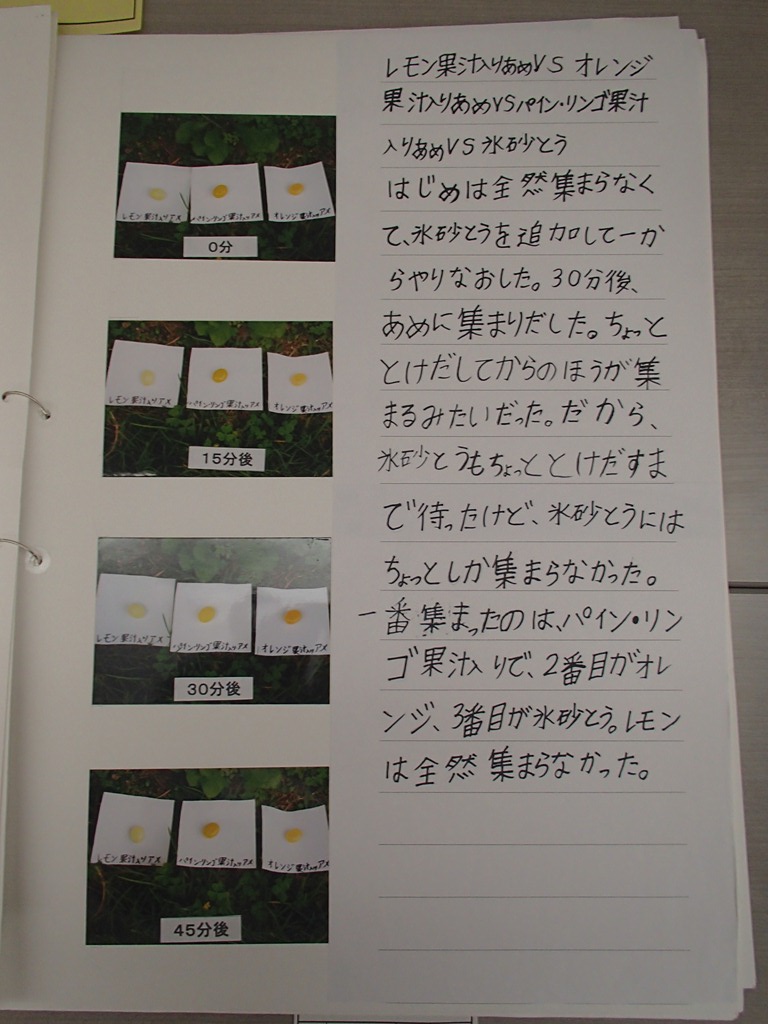 レモン果汁入りあめVS オレンジ
果汁入りあめVSパイン・リンゴ果汁
入りあめVS氷砂とう
はじめは全然集まらなく
て、氷砂とうを追加して一か
らやりなおした。30分後、
あめに集まりだした。ちょっと
とけだしてからのほうが集
まるみたいだった。だから、
氷砂とうもちょっととけだすま
で待ったけど、氷砂とうには
ちょっとしか集まらなかった。
一番集まったのは、パイン・リン
ゴ果汁入りで、2番目がオレ
ンジ、3番目が氷砂とう。レモン
は全然集まらなかった。
レモン果汁入りアメ
パイン・リンゴ果汁入りアメ
オレンジ果汁入りアメ
0分
レモン果汁入りアメ
パイン・リンゴ果汁入りアメ
オレンジ果汁入りアメ
15分後
レモン果汁入りアメ
パイン・リンゴ果汁入りアメ
オレンジ果汁入りアメ
30分後
レモン果汁入りアメ
パイン・リンゴ果汁入りアメ
オレンジ果汁入りアメ
45分後